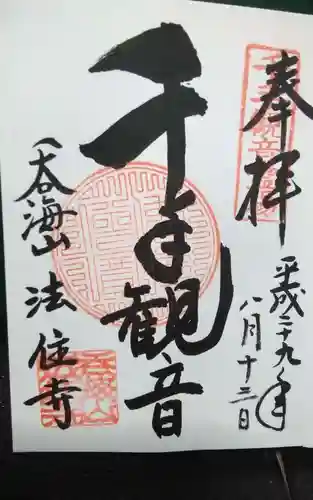 奉拝
平成二十九年
八月十三日
千手観音
呑海山 法住寺